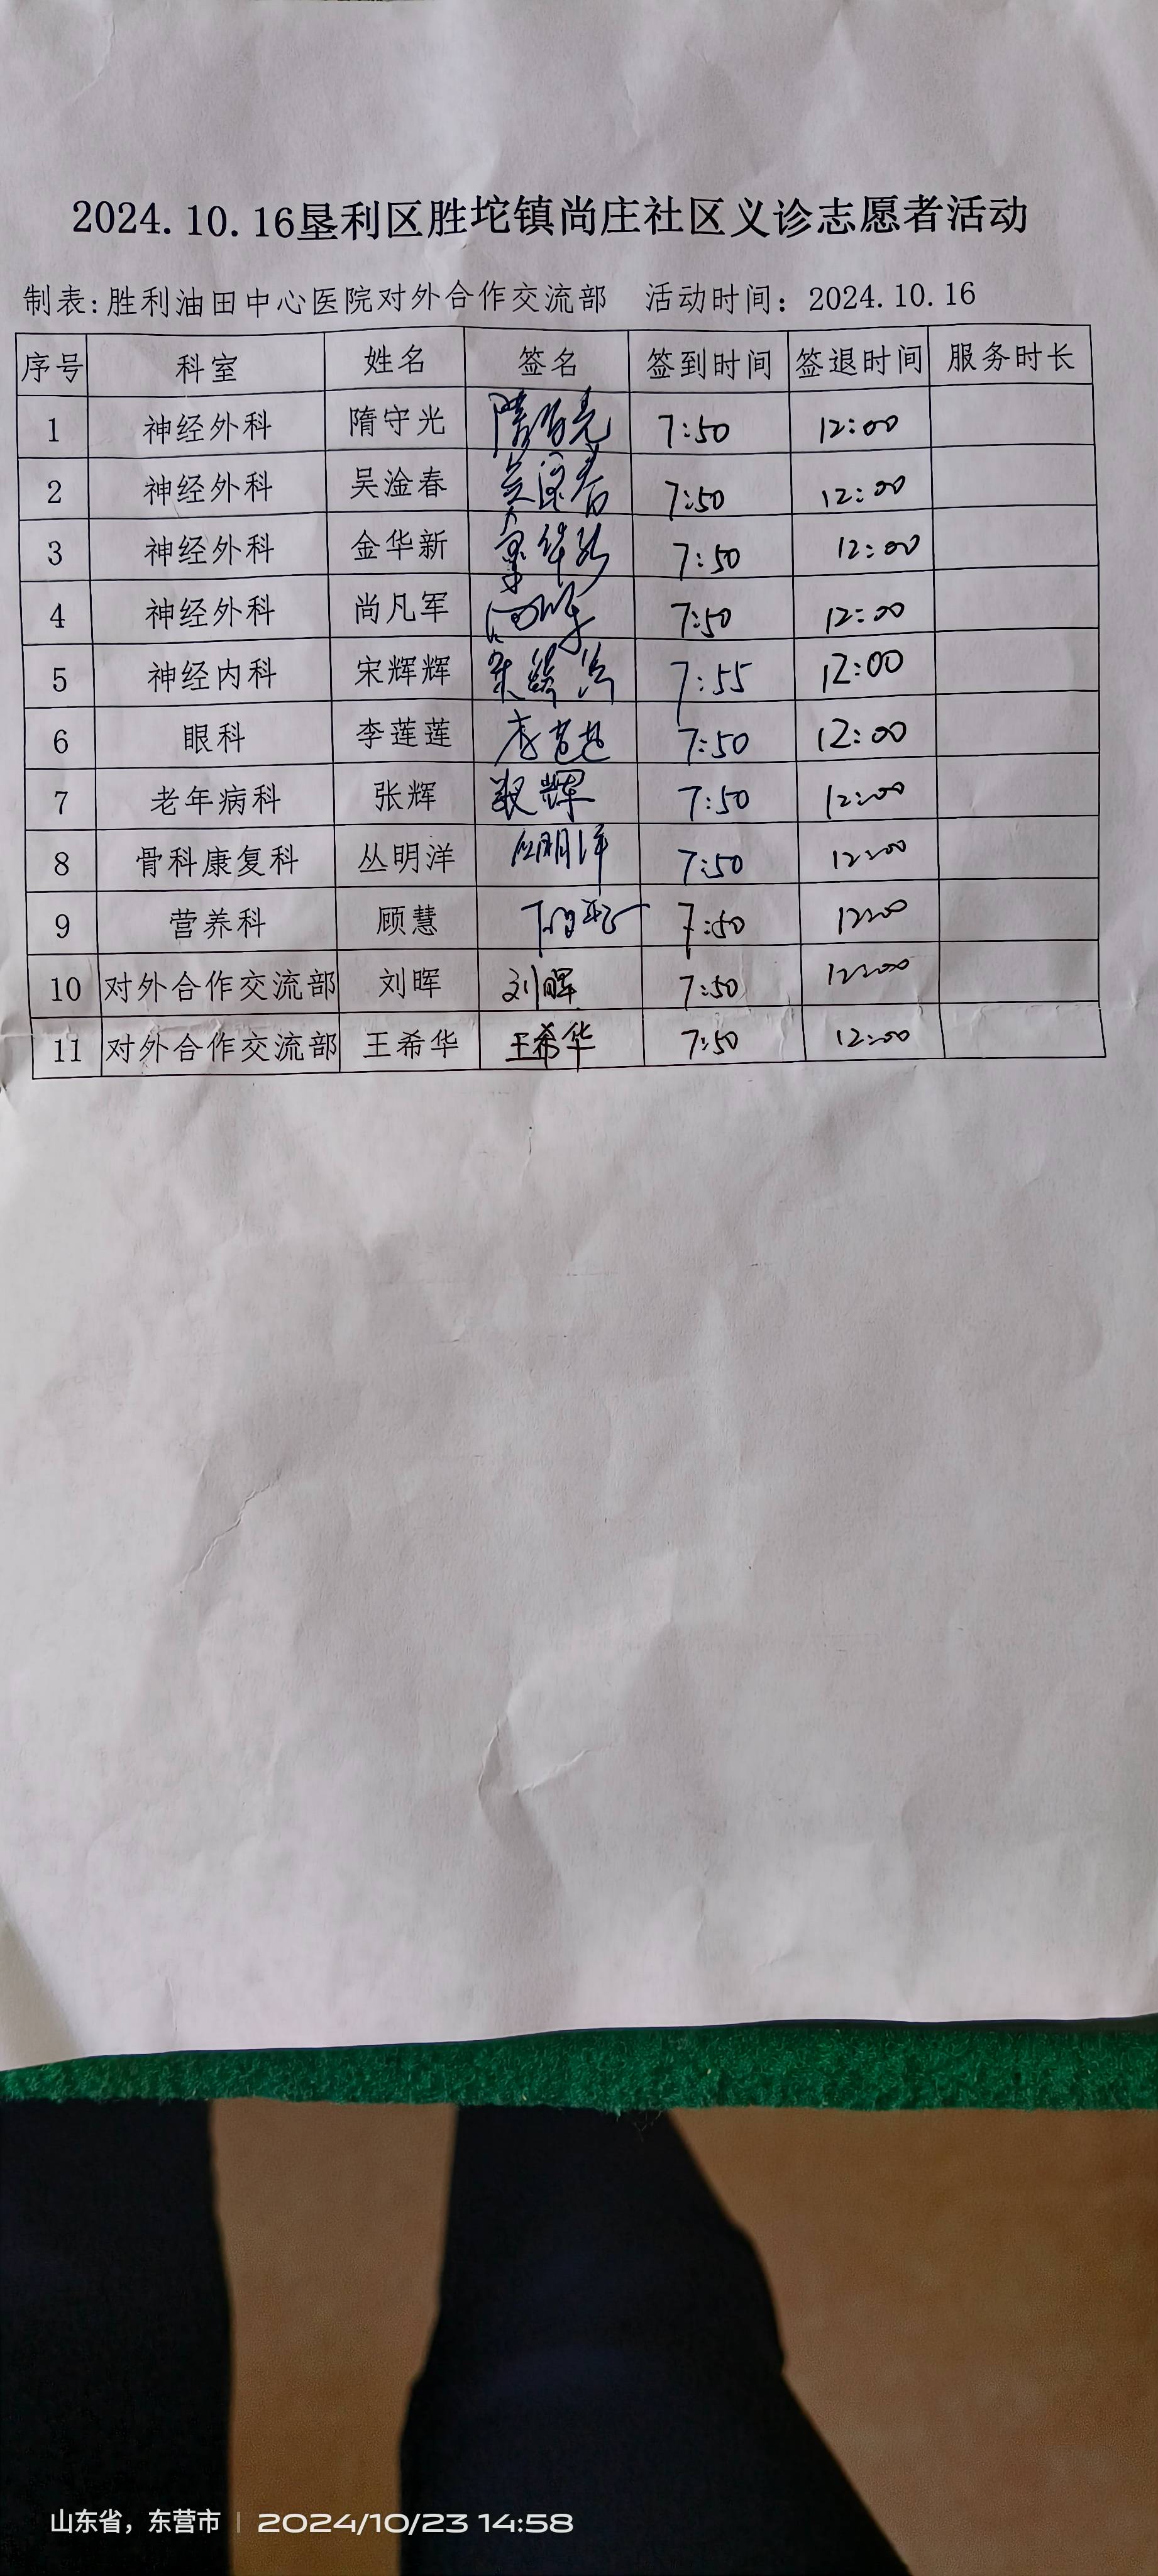 2024.10.16垦利区胜坨镇尚庄社区义诊志愿者活动
制表:胜利油田中心医院对外合作交流部 活动时间：2024.10.16
序号 科室 姓名 签名 签到时间 签退时间 服务时长
1 神经外科 隋守光 隋守光 7:50 12:00
2 神经外科 吴淦春 吴淦春 7:50 12:00
3 神经外科 金华新 7:50 12:00
4 神经外科 尚凡军 7:50 12:00
5 神经内科 宋辉辉 7:55 12:00
6 眼科 李莲莲 李莲莲 7:50 12:00
7 老年病科 张辉 张辉 7:50 12:00
8 骨科康复科 丛明洋 丛明洋 7:50 12:00
9 营养科 顾慧 7:50 12:00
10 对外合作交流部 刘晖 刘晖 7:50 12:00
11 对外合作交流部 王希华 王希华 7:50 12:00
山东省，东营市 | 2024/10/23 14:58